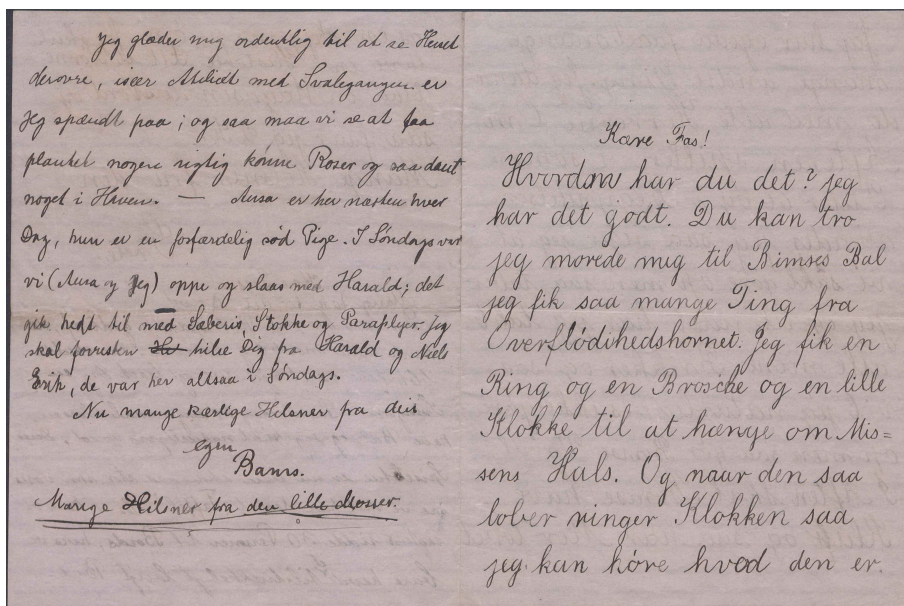 Jeg glæder mig ordentlig til at se Huset
derovre, især Atelidt med Svalegangen er
jeg spændt paa; og saa maa vi se at faa
plantet nogen rigtig kønne Roser og saadant
noget i Haven. — Ausa er her næsten hver
Dag, hun er en forfærdelig sød Pige. I Søndags var
vi (Ausa og jeg) oppe og slaas med Harald; det
gik hedt til med Sæberis, Stokke og Paraplyer. Jeg
skal forresten hilse Dig fra Harald og Niels
Erik, de var her altsaa i Søndags.
Nu mange kærlige Hilsner fra din
egen
Bams.
Mange Hilsner fra den lille
Kære Fas!
Hvordan har du det? jeg
har det godt. Du kan tro
jeg morede mig til Bimses Bal
jeg fik saa mange Ting fra
Overflødihedshornet. Jeg fik en
Ring og en Brosche og en lille
Klokke til at hænge om Mis=
sens Hals. Og naar den saa
løber ringer Klokken saa
jeg kan høre hvod den er.